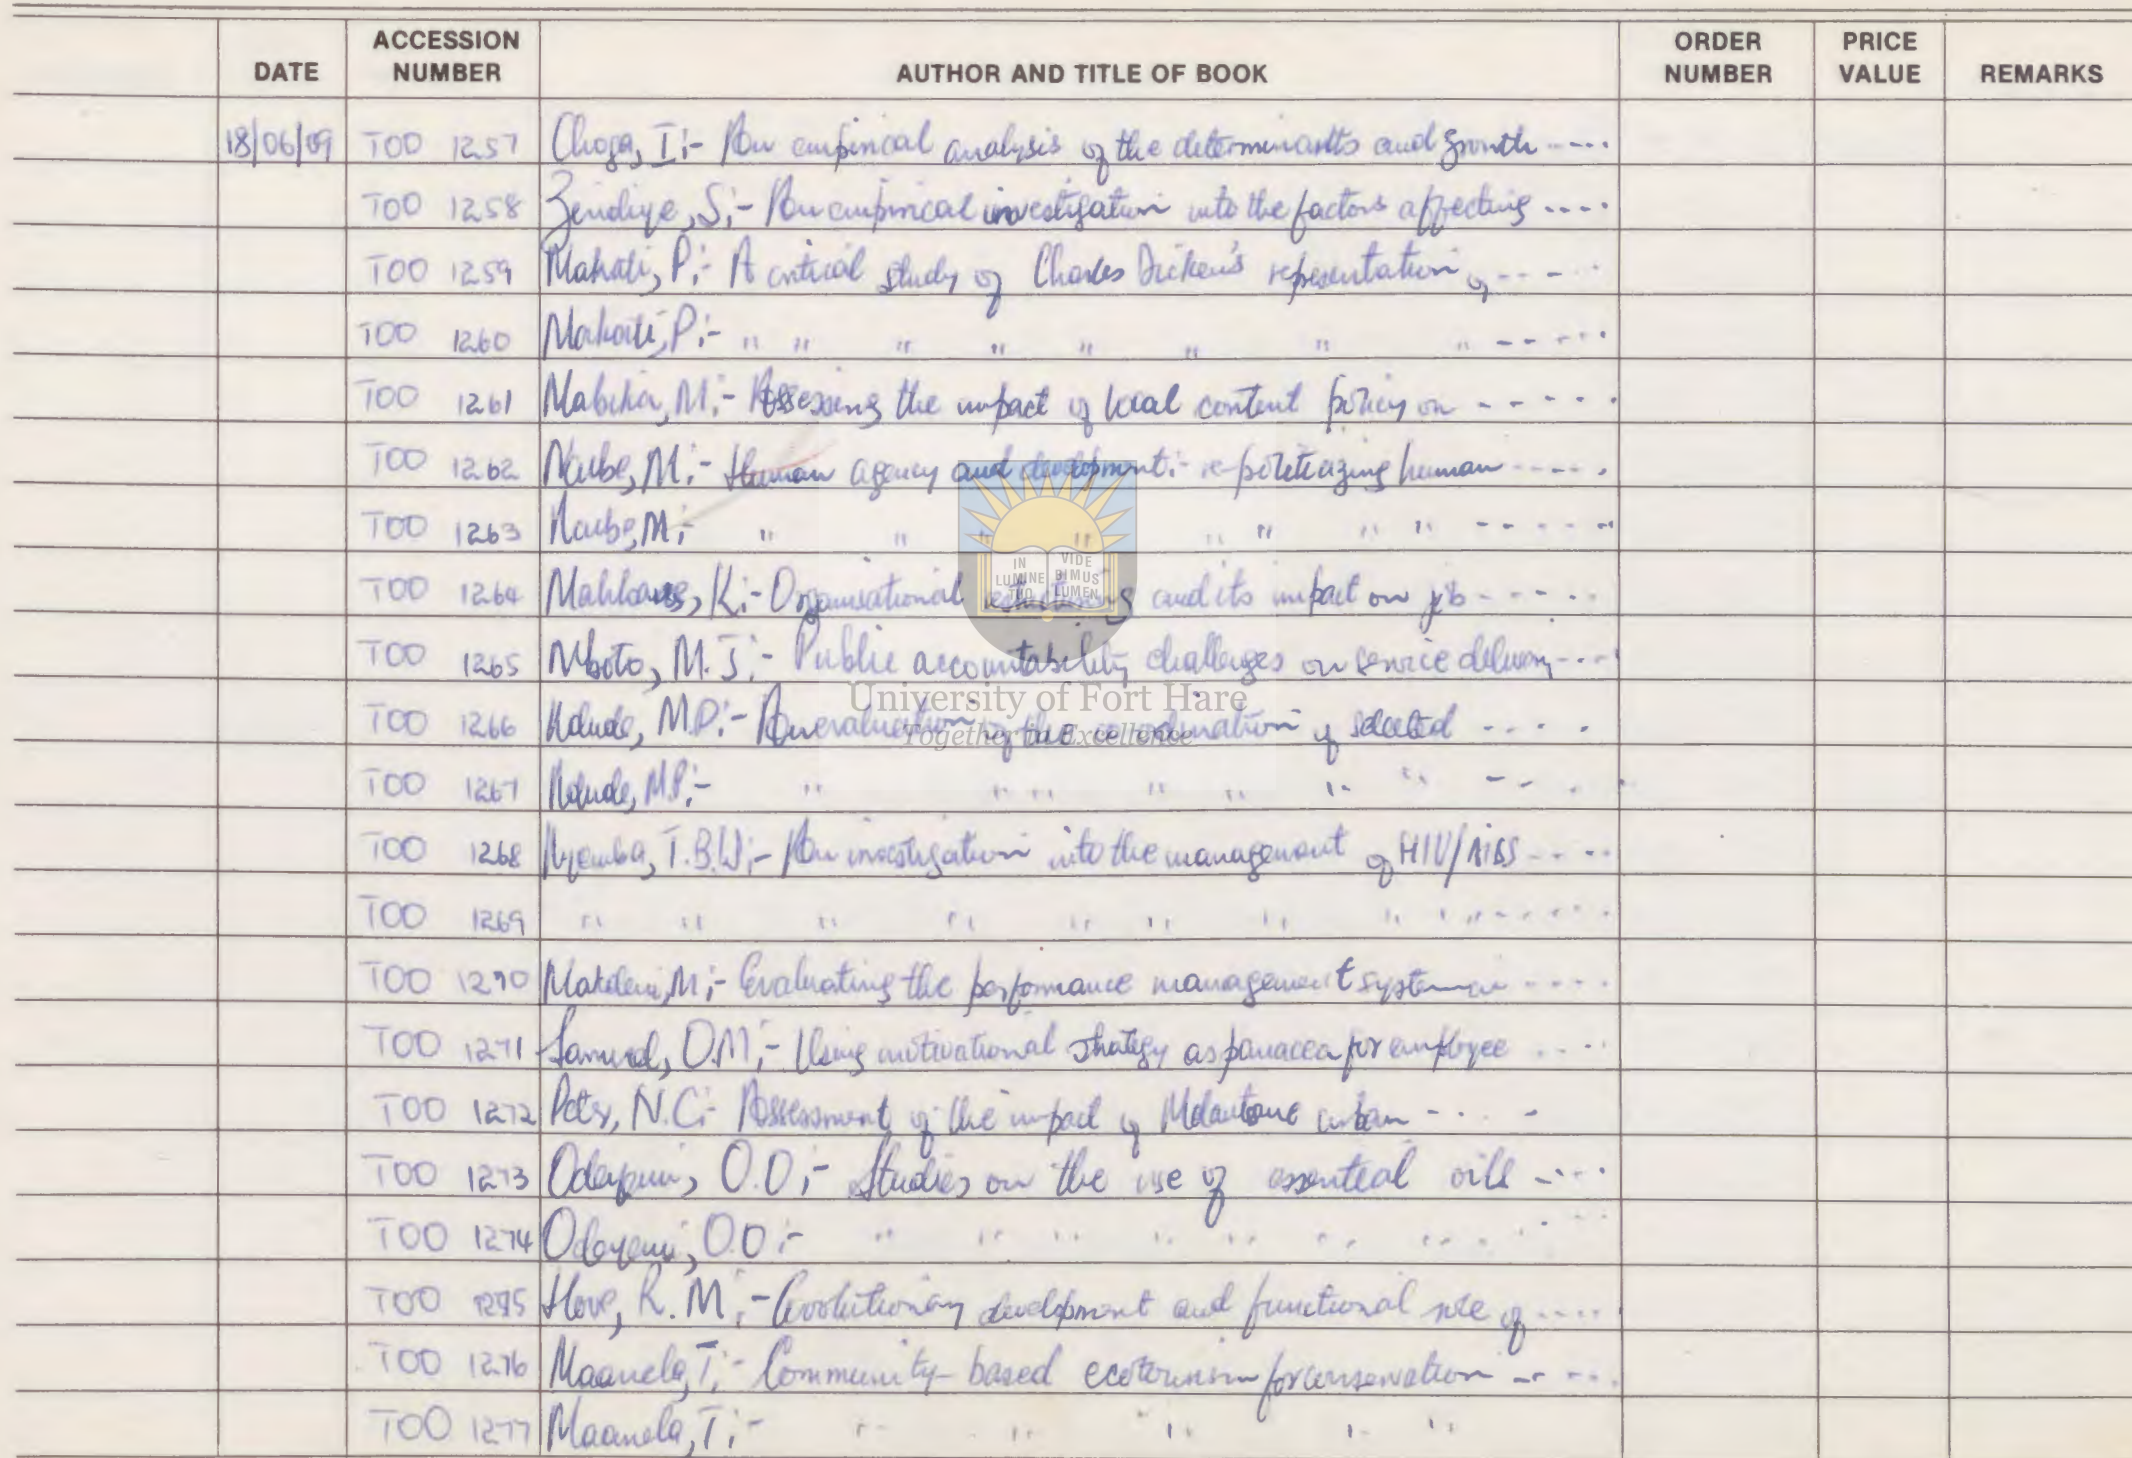 DATE ACCESSION NUMBER AUTHOR AND TITLE OF BOOK ORDER NUMBER PRICE VALUE REMARKS
18/06/09 TOO 1257 Choga, I:- An empirical analysis of the determinants and growth ----
TOO 1258 Zindiye, S:- An empirical investigation into the factors affecting ....
TOO 1259 Mahati, P:- A critical study of Charles Dicken's representation of ----
TOO 1260 Mahati, P:- " " " " " " " " -----
TOO 1261 Mabika, M:- Assessing the impact of local content policy on -----
TOO 1262 Ncube, M:- Human agency and development:- re-politicizing human ----
TOO 1263 Ncube, M:- " " " " " " " " -----
TOO 1264 K:- Organisational and its impact on job -----
TOO 1265 Mboto, M.J:- Public accountability challenges on service delivery ---
TOO 1266 Ndude, M.P:- An evaluation of the co-ordination of selected ----
TOO 1267 Ndude, M.P:- " " " " " " " ----
TOO 1268 T.B.W:- An investigation into the management of HIV/AIDS ----
TOO 1269 " " " " " " " " " " -----
TOO 1270 M:- Evaluating the performance management system in ----
TOO 1271 Samuel, O.M:- Using motivational strategy as panacea for employee ....
TOO 1272 Peter, N.C:- Assessment of the impact of Mdantsane urban ----
TOO 1273 Odeyemi, O.O:- Studies on the use of essential oils ----
TOO 1274 Odeyemi, O.O:- " " " " " " " " ---
TOO 1275 Hove, R.M:- Evolutionary development and functional role of ----
TOO 1276 Maanela, T:- Community-based ecotourism for conservation ----
TOO 1277 Maanela, T:- " " " " "
IN LUMINE TUO VIDE BIMUS LUMEN
University of Fort Hare
Together in Excellence